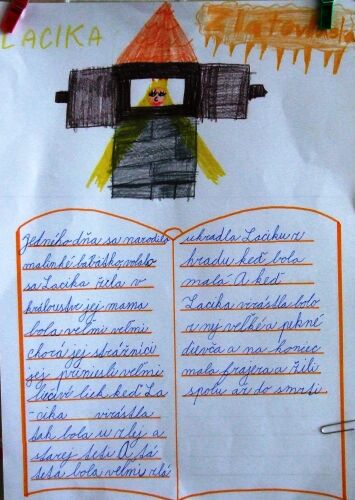 LACIKA
Zlatovláska
Jedného dňa sa narodila
malinké bábätko volalo
sa Lacika žila v
kráľovstve jej mama
bola veľmi veľmi
chorá jej strážnici
jej priniesli veľmi
liečivé liek keď La-
-cika virástla
tak bola u zlej a
starej teti A tá
teta bola veľmi zlá
ukradla Laciku z
hradu keď bola
malá A keď
Lacika virástla bolo
z nej veľké a pekné
dievča a na konec
mala frajera a žili
spolu až do smrti.